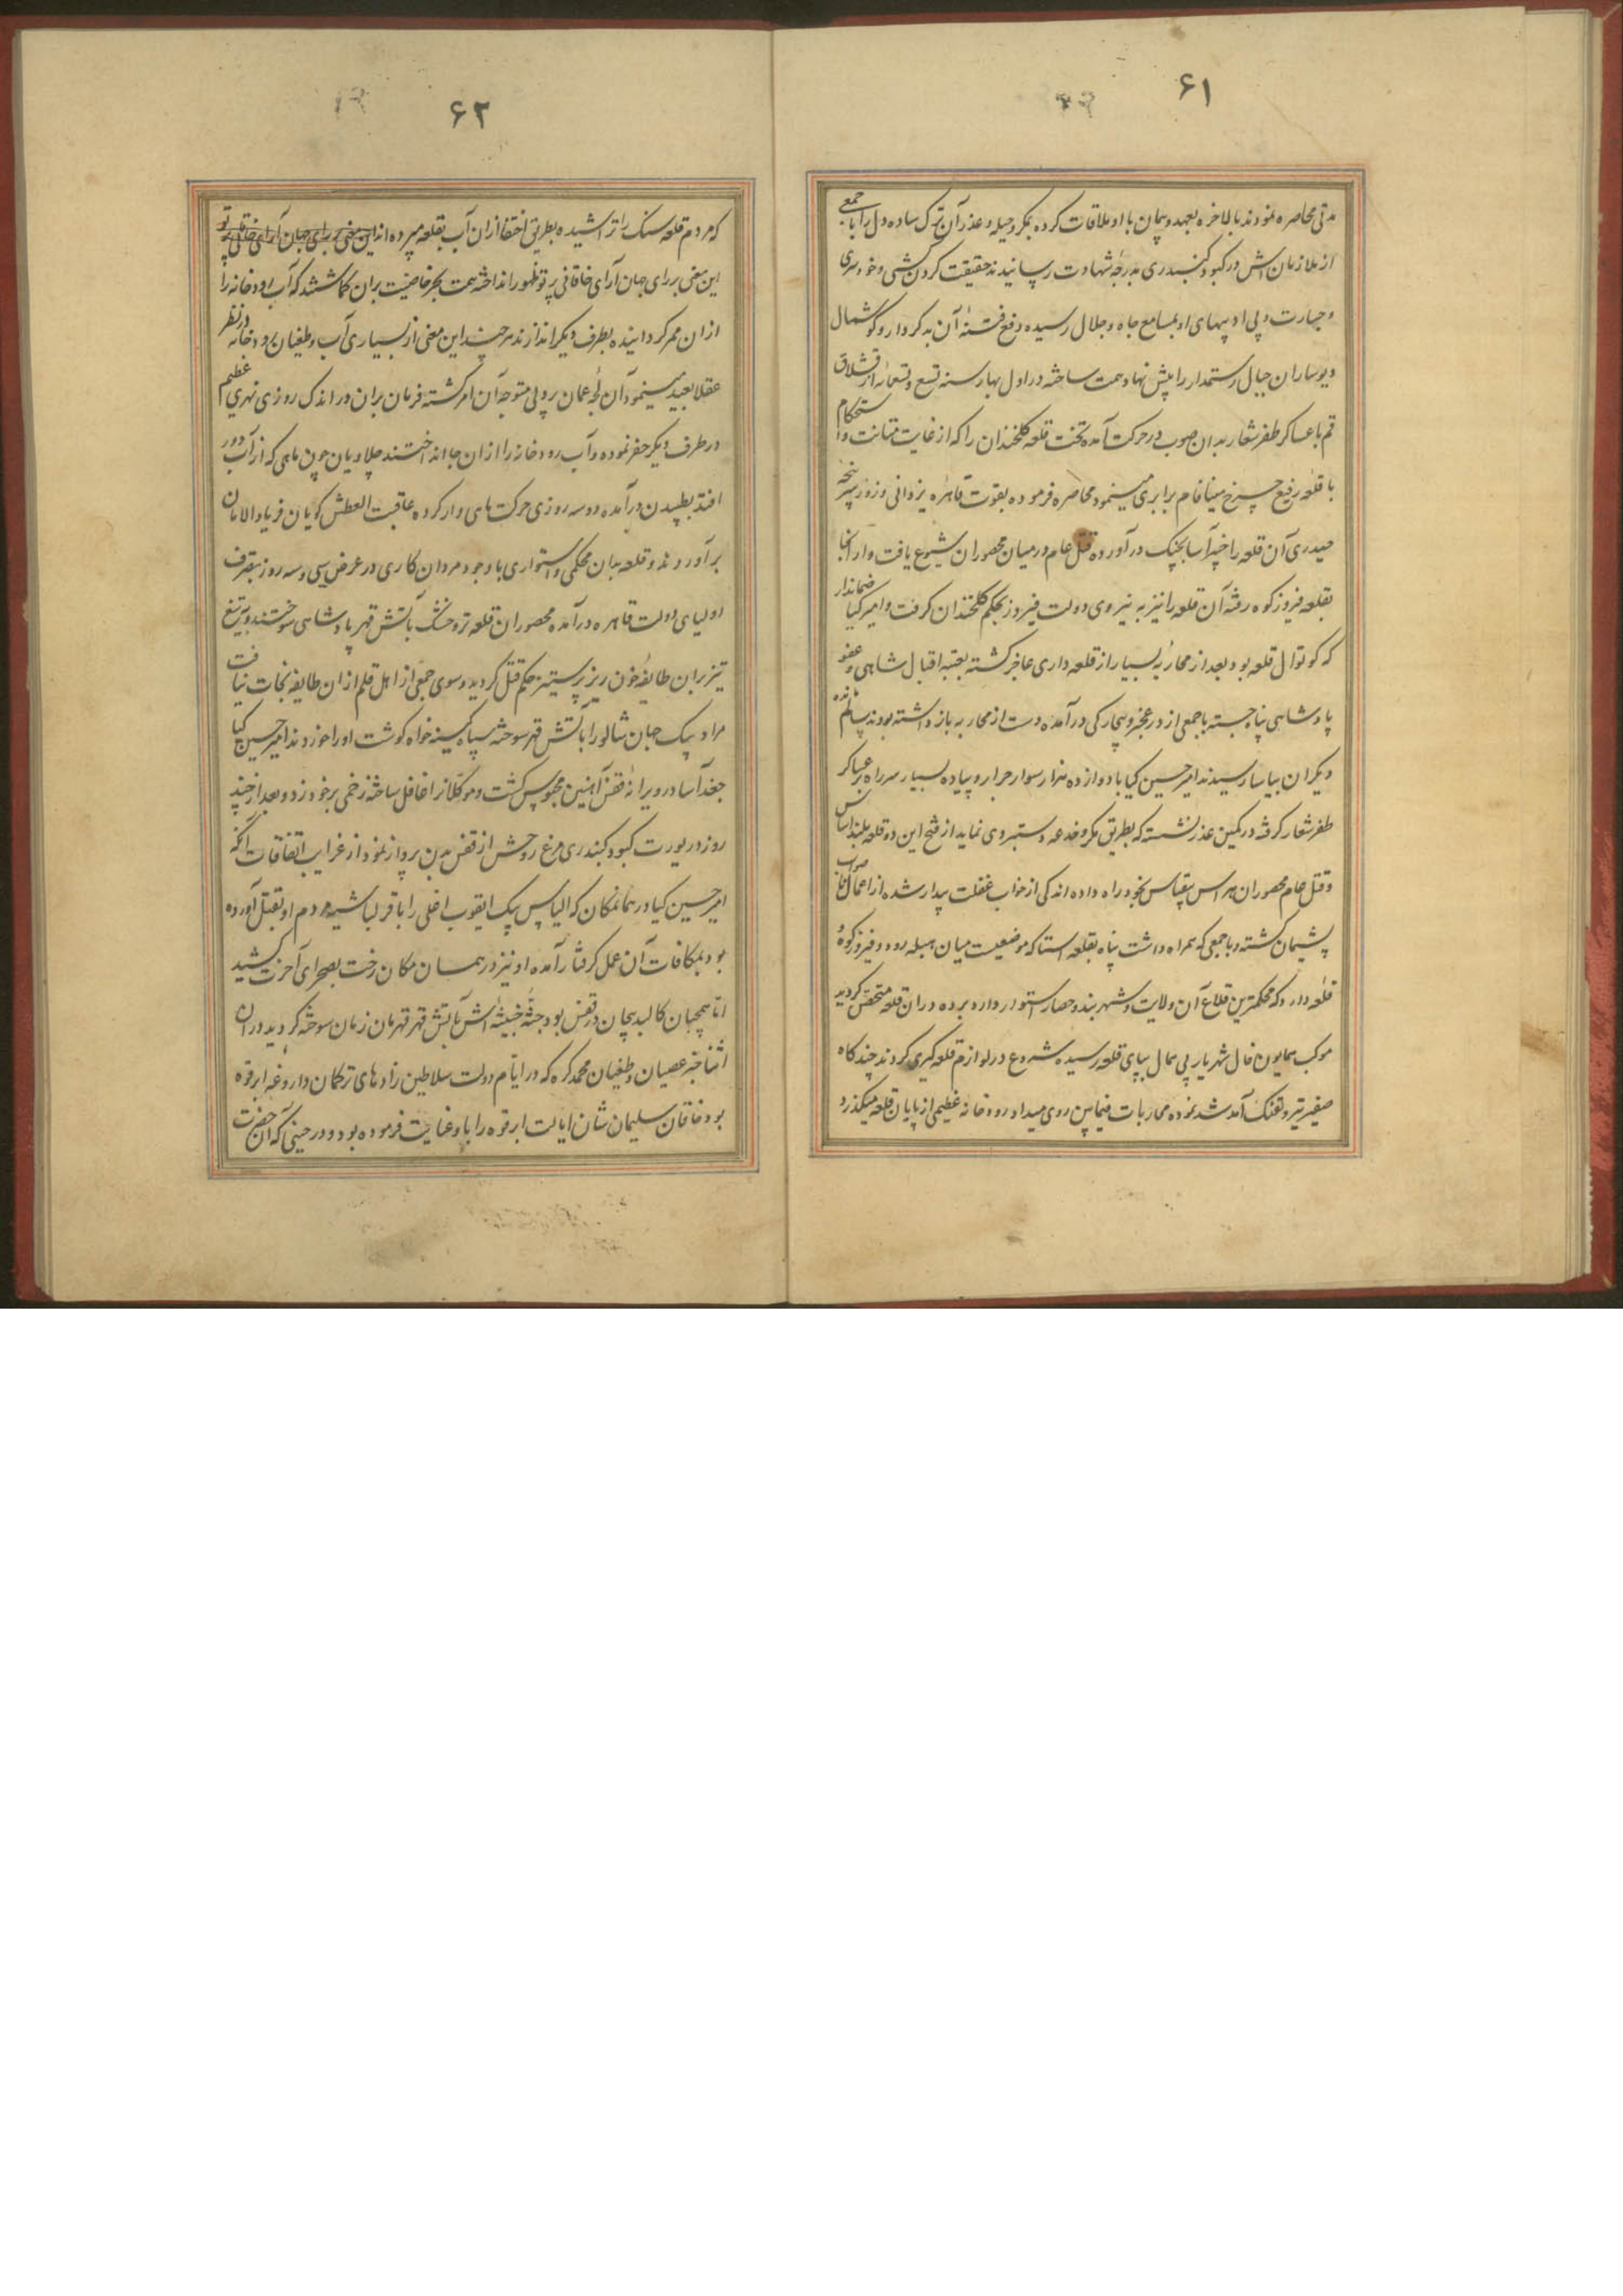 ۶۱
مدتی محاصره نمودند بالاخره بعهد و پیمان با او ملاقات کرده بمکر و حیله و عذر آن ترک ساده دل را با جمعی
از ملازمان اش در کبود کنبدری بدرجه شهادت رسانیدند حقیقت کردن کشی و خود سری
و جسارت و بی ادبیهای او بمسامع جاه و جلال رسیده دفع فتنه آن بدکردار و کوشمال
دیوساران جبال رستمدار را پیش نهاد همت ساخته در اول بهار سنه تسع و تسعمائه از قشلاق
قم با عساکر ظفر شعار بدان صوب در حرکت آمده نخست قلعه کلخندان را که از غایت متانت و استحکام
با قلعه رفیع چرخ مینا فام برابری مینمود محاصره فرموده بقوت قاهره یزدانی و زور سرپنجه
حیدری آن قلعه را خیبرآسا بچنک درآورده قتل عام در میان محصوران شیوع یافت و از آنجا
بقلعه فیروزکوه رفته آن قلعه را نیز به نیروی دولت فیروز بحکم کلخندان کرفت و امیر کیا ضماندار
که کوتوال قلعه بود بعد از محاربه بسیار از قلعه داری عاجز کشته بعتبه اقبال شاهی و عفو
پادشاهی پناه جسته با جمعی از در عجز و بیچارکی درآمده دست از محاربه باز داشته بودند سالم مانده
دیکران بیاسا رسیدند امیر حسین کیا با دوازده هزار سوار جرار و پیاده بسیار سر راه بر عساکر
ظفر شعار کرفته در کمین عذر نشسته که بطریق مکر و خدعه دستبردی نماید از فتح این دو قلعه بلند اساس
و قتل عام محصوران هراس بیقیاس بخود راه داده اندکی از خواب غفلت بیدار شده از اعمال ناصواب
پشیمان کشته و با جمعی که همراه داشت پناه بقلعه استا که موضعیست میان هبله رود و فیروزکوه و
قلعه دارد که محکمترین قلاع آن ولایت و شهربند و حصار استوار دارد برده در ان قلعه متحصن کردید
موکب همایون فال شهریار بی همال بپای قلعه رسیده شروع در لوازم قلعه کیری کردند چند کاه
صفیر تیر و تفنک آمد شد نموده محاربات فیمابین روی میداد رودخانه عظیمی از پایان قلعه میکذرد
۶۲
که مردم قلعه سنک را تراشیده بطریق اختفا از ان آب بقلعه میبرده اند این معنی بر رای جهان آرای خاقانی پرتو
این معنی بر رای جهان آرای خاقانی پرتو ظهور انداخته همت بحر خاصیت بران کماشتند که آب رودخانه را
از ان ممر کردانیده بطرف دیکر اندازند هر چند این معنی از بسیاری آب و طغیان رودخانه در نظر
عقلا بعید مینمود آن لجه عمان پر دلی متوجه آن امر کشته فرمان بران در اندک روزی نهری عظیم
در طرف دیکر حفر نموده و آب رودخانه را از ان جا انداختند چلاویان چون ماهی که از آب دور
افتد بطپیدن درآمده دو سه روزی حرکت ماهی وار کرده عاقبت العطش کویان فریاد الامان
برآوردند و قلعه بدان محکمی و استواری با وجود مردان کاری در عرض سی و سه روز بتصرف
اولیای دولت قاهره درآمده محصوران قلعه تر و خشک بآتش قهر پادشاهی سوختند و به تیغ
تیز بران طایفه خون ریز پر ستیز حکم قتل کردید و سوی جمعی از اهل قلم از ان طایفه نجات نیافت
مراد بیک جهان شالو را بآتش قهر سوخته سپاه کینه خواه کوشت او را خوردند امیر حسین کیا
جغدآسا در ویرانه قفس آهنین محبوس کشت و موکلانرا غافل ساخته زخمی بر خود زد و بعد از چند
روز در یورت کبود کنبدری مرغ روحش از قفس بدن پرواز نمود از غرایب اتفاقات آنکه
امیر حسین کیا در همانمکان که الیاس بیک ایقوب اغلی را با قزلباشیه مردم او بقتل آورده
بود بمکافات آن عمل کرفتار آمده او نیز در همان مکان رخت بصحرای آخرت کشید
اما همچنان کالبد بیجان در قفس بود جثه خبیثه اش بآتش قهر قهرمان زمان سوخته کردید در ان
اثنا خبر عصیان و طغیان محمد کره که در ایام دولت سلاطین زادهای ترکمان داروغه ابرقوه
بود خاقان سلیمان شان ایالت ابرقوه را باو عنایت فرموده بود و در حینی که آن حضرت